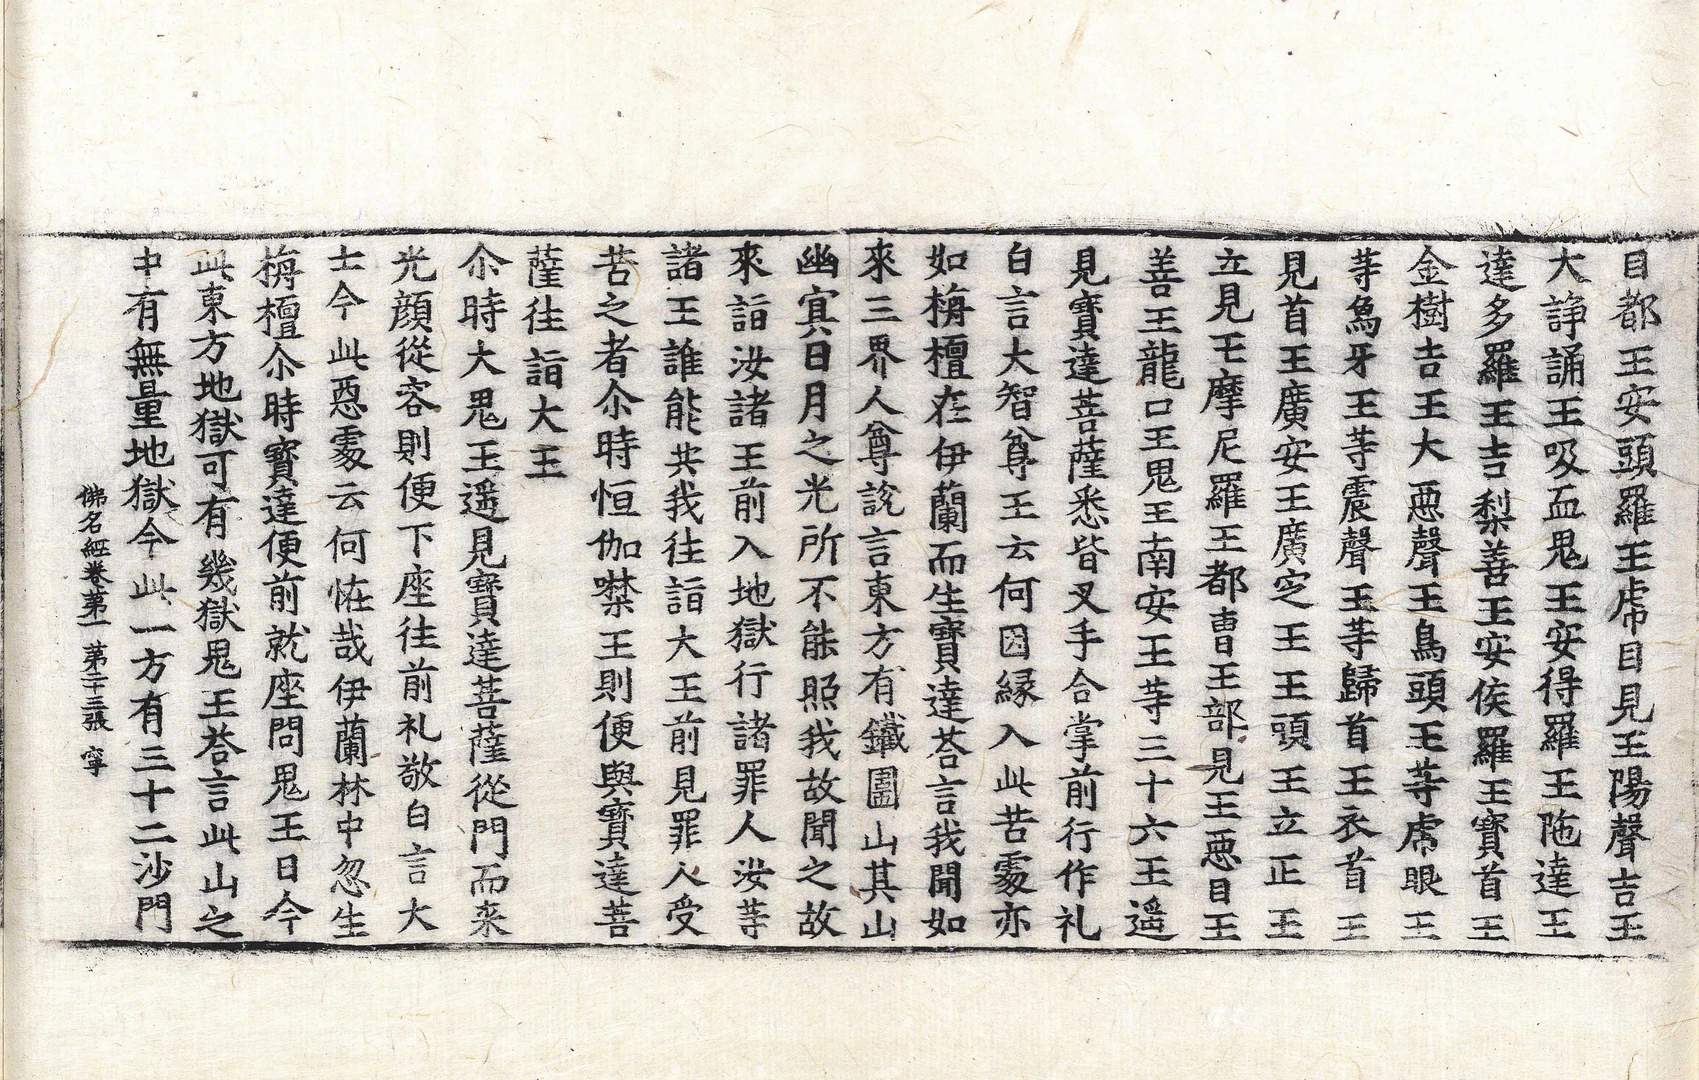 目都王安頭羅王席目見王陽聲吉王
大諍誦王吸血鬼王安得羅王陁達王
達多羅王吉梨善王安侯羅王寳首王
金樹吉王大惡聲王鳥頭王等虎眼王
等為牙王等震聲王等歸首王衣首王
見首王廣安王廣定王王頭王立正王
立見王摩尼羅王都曹王部見王惡目王
善王龍口王鬼王南安王等三十六王遥
見寳達菩薩悉皆叉手合掌前行作礼
白言大智尊王云何因縁入此苦處亦
如栴檀在伊蘭而生寳達荅言我聞如
來三界人尊說言東方有鐵圍山其山
幽冥日月之光所不能照我故聞之故
來詣汝諸王前入地獄行諸罪人汝等
諸王誰能共我往詣大王前見罪人受
苦之者尒時恒伽噤王則便與寳達菩
薩往詣大王
尒時大鬼王遥見寳達菩薩從門而来
光顔從容則便下座往前礼敬白言大
士今此惡處云何恠哉伊蘭林中忽生
栴檀尒時寳達便前就座問鬼王曰今
此東方地獄可有幾獄鬼王荅言此山之
中有無量地獄今此一方有三十二沙門
佛名經卷第一 第二十三張 寧